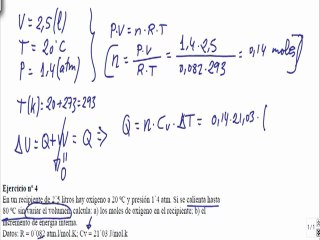 V = 2,5 (l)
T = 20°C
P = 1,4 (atm)
P.V = n.R.T
n = P.V / R.T = 1,4.2,5 / 0,082.293 = 0,14 moles
T(k) = 20+293 = 293
ΔU = Q + W = Q ⇒ Q = n.Cv.ΔT = 0,14.21,03.(
0
Ejercicio nº 4
En un recipiente de 2´5 litros hay oxígeno a 20 ºC y presión 1´4 atm. Si se calienta hasta
80 ºC sin variar el volumen calcula: a) los moles de oxígeno en el recipiente; b) el
incremento de energía interna.
Datos: R = 0´082 atm.l/mol.K; Cv = 21´03 J/mol.k